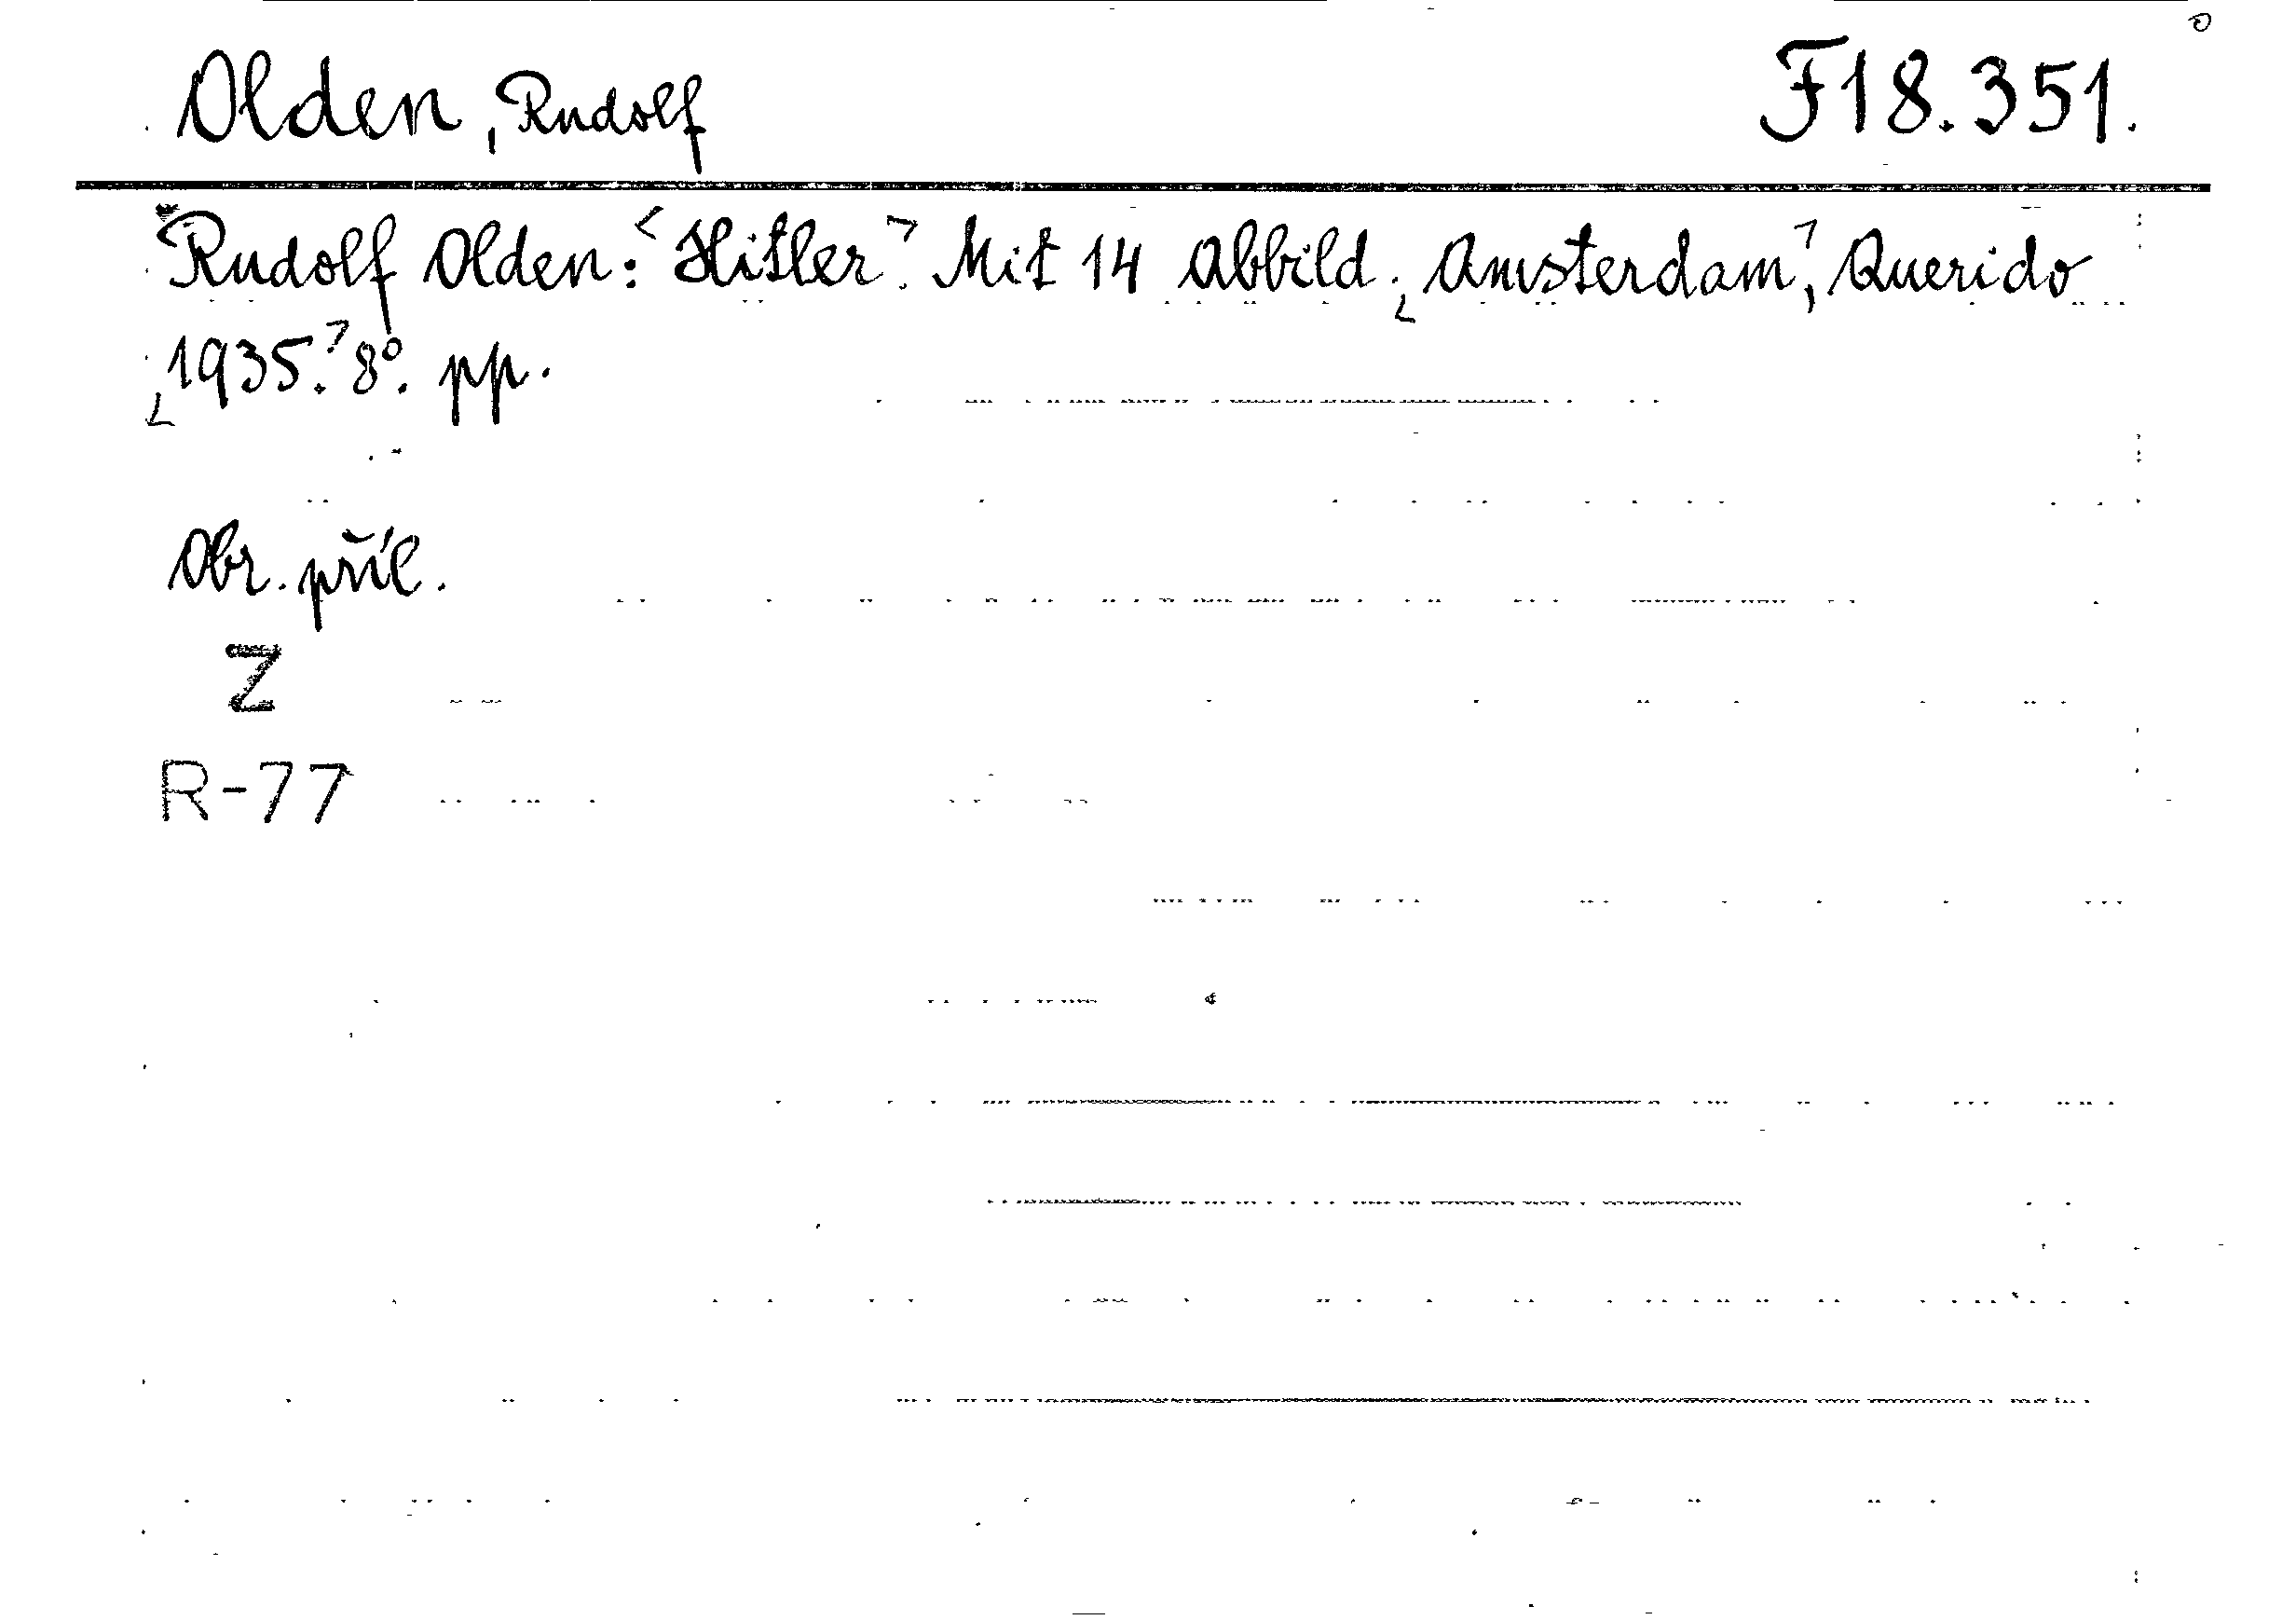 Olden, Rudolf F18.351.
Rudolf Olden: <Hitler>. Mit 14 Abbild. <Amsterdam>, Querido
<1935.> 8°. pp.
Obr. příl.
Z
R-77